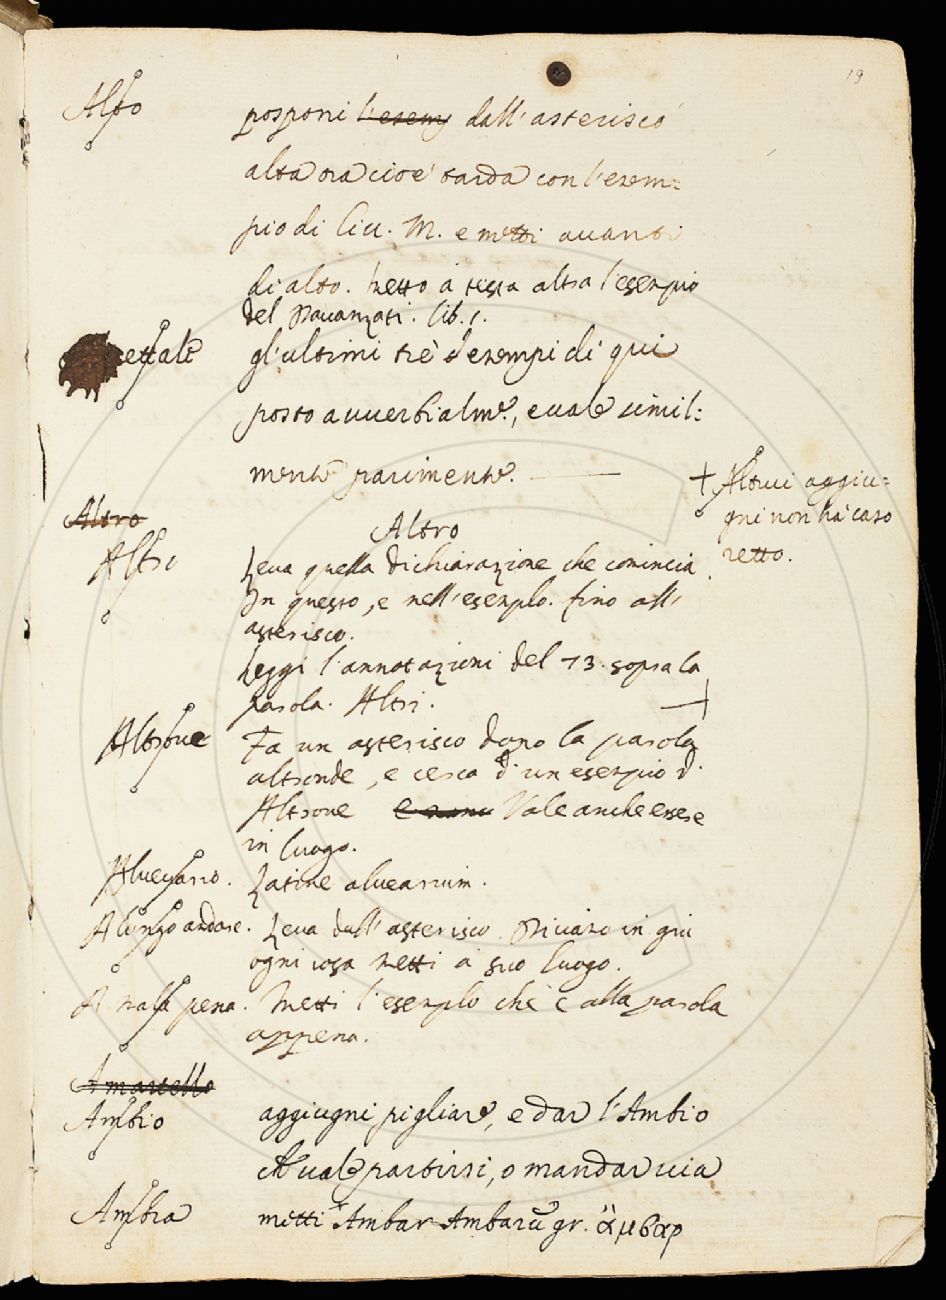 19
Alto posponi l'esem dall'asterisco
alta ora cioè tarda con l'esem=
pio di Liv. M. e metti avanti
di alto. Metto a testa alta l'esempio
del Davanzati. lib. 1.
ettale gl'ultimi trè d'esempi di qui
posto avverbialm.e, e vale simil=
mente parimente.
+ Altrui aggiu=
gni non hà caso
retto.
Altro
Altro
Altro Leva quella dichiarazione che comincia
In questo, e nell'esemplo. fino all'
asterisco.
Leggi l'annotazioni del 73. sopra la
parola. Altri. +
Altrove Fa un asterisco dopo la parola
altronde, e cerca d'un esempio d.
Altrove Vale anche essere
in luogo.
Alveario. Latine alvearium.
A lungo andare. Leva dall'asterisco. Diviaro in giu
ogni cosa metti à suo luogo.
A mala pena. Metti l'esemplo che è alla parola
appena.
Amartello
Ambio aggiugni pigliare, e dar l'Ambio
vale partirsi, o mandar via
Ambra metti Ambar Ambarū gr. ἄμβαρ